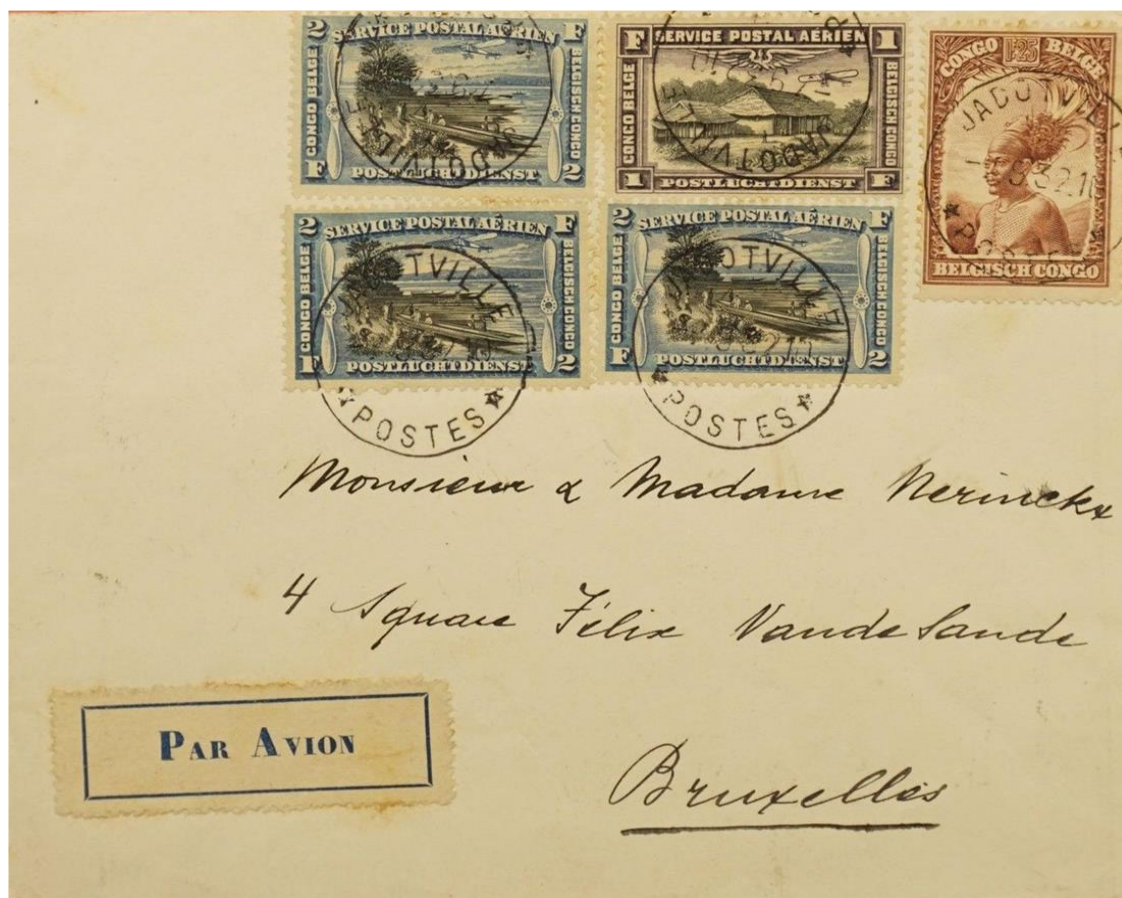 2 SERVICE POSTAL AÉRIEN F
CONGO BELGE
BELGISCH CONGO
F POSTLUCHTDIENST 2
JADOTVILLE
F SERVICE POSTAL AÉRIEN 1
CONGO BELGE
BELGISCH CONGO
1 POSTLUCHTDIENST F
JADOTVILLE
CONGO BELGE
1.25
BELGISCH CONGO
JADOTVILLE
POSTES
2 SERVICE POSTAL AÉRIEN F
CONGO BELGE
BELGISCH CONGO
F POSTLUCHTDIENST 2
JADOTVILLE
POSTES
2 SERVICE POSTAL AÉRIEN F
CONGO BELGE
BELGISCH CONGO
F POSTLUCHTDIENST 2
JADOTVILLE
POSTES
Monsieur & Madame Nerinckx
4 Square Félix Vande Sande
PAR AVION
Bruxelles